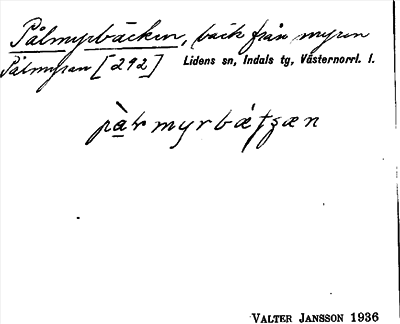 Pålmyrbäcken, bäck från myren
Pålmyran [292] Lidens sn, Indals tg, Västernorrl. l.
VALTER JANSSON 1936